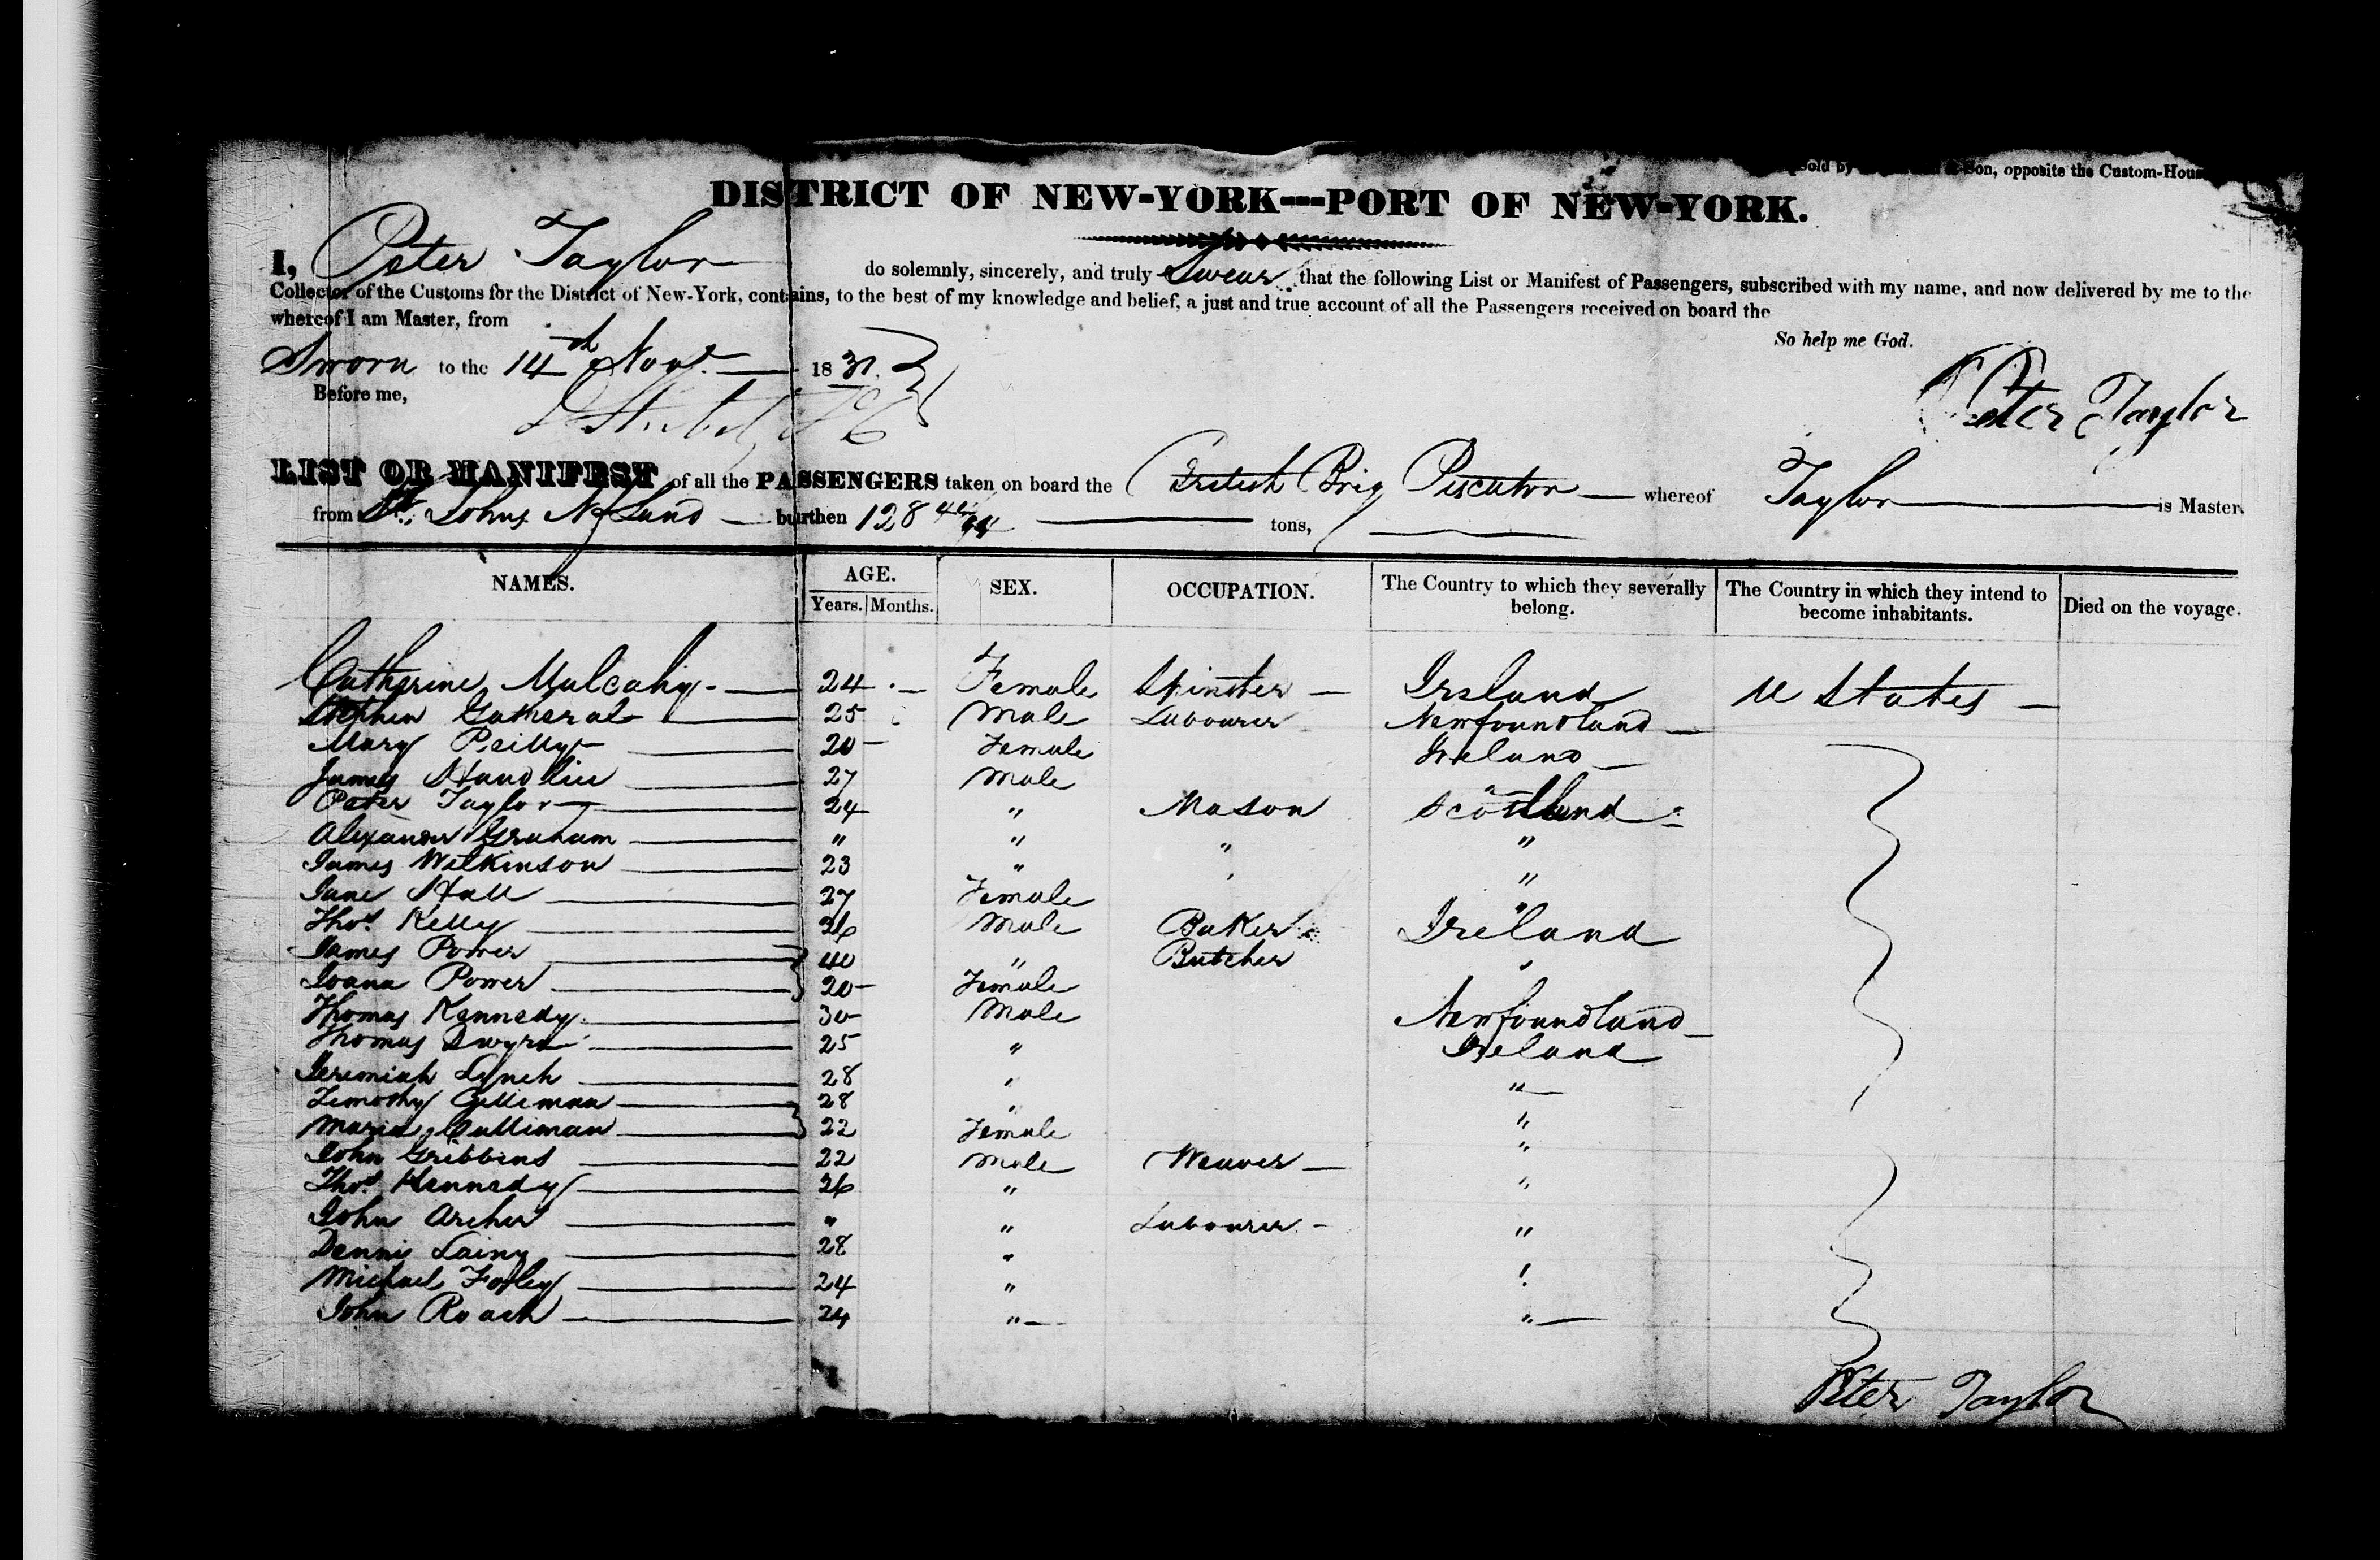 Sold by Son, opposite the Custom-House
DISTRICT OF NEW-YORK---PORT OF NEW-YORK.
I, Peter Taylor do solemnly, sincerely, and truly Swear that the following List or Manifest of Passengers, subscribed with my name, and now delivered by me to the
Collector of the Customs for the District of New-York, contains, to the best of my knowledge and belief, a just and true account of all the Passengers received on board the
whereof I am Master, from
So help me God.
Sworn to the 14th Novr. 1831.
Peter Taylor
Before me,
LIST OR MANIFEST of all the PASSENGERS taken on board the British Brig Piscator whereof Taylor is Master,
from St. Johns N. F Land burthen 128 tons,
NAMES. AGE. Years. Months. SEX. OCCUPATION. The Country to which they severally belong. The Country in which they intend to become inhabitants. Died on the voyage.
Catherine Mulcahy 24 Female Spinster Ireland U States
Stephen Gatheral 25 Male Labourer Newfoundland
Mary Reilly 20 Female Ireland
James 27 Male "
Peter Taylor 24 " Mason Scotland
Alexander Graham " " " "
James Wilkinson 23 " " "
Jane Hall 27 Female "
Thos. Kelly 26 Male Baker Ireland
James Power 40 " Butcher "
Joana Power 20 Female
Thomas Kennedy 30 Male Newfoundland
Thomas Dwyre 25 " Ireland
Jeremiah Lynch 28 " "
Timothy Culliman 28 " "
Maria Culliman 22 Female "
John Gribbins 22 Male Weaver "
Thos. Kennedy 26 " "
John Archer " " Labourer "
Dennis Lainy 28 "
Michael Forley 24 " "
John Roach 24 " "
Peter Taylor